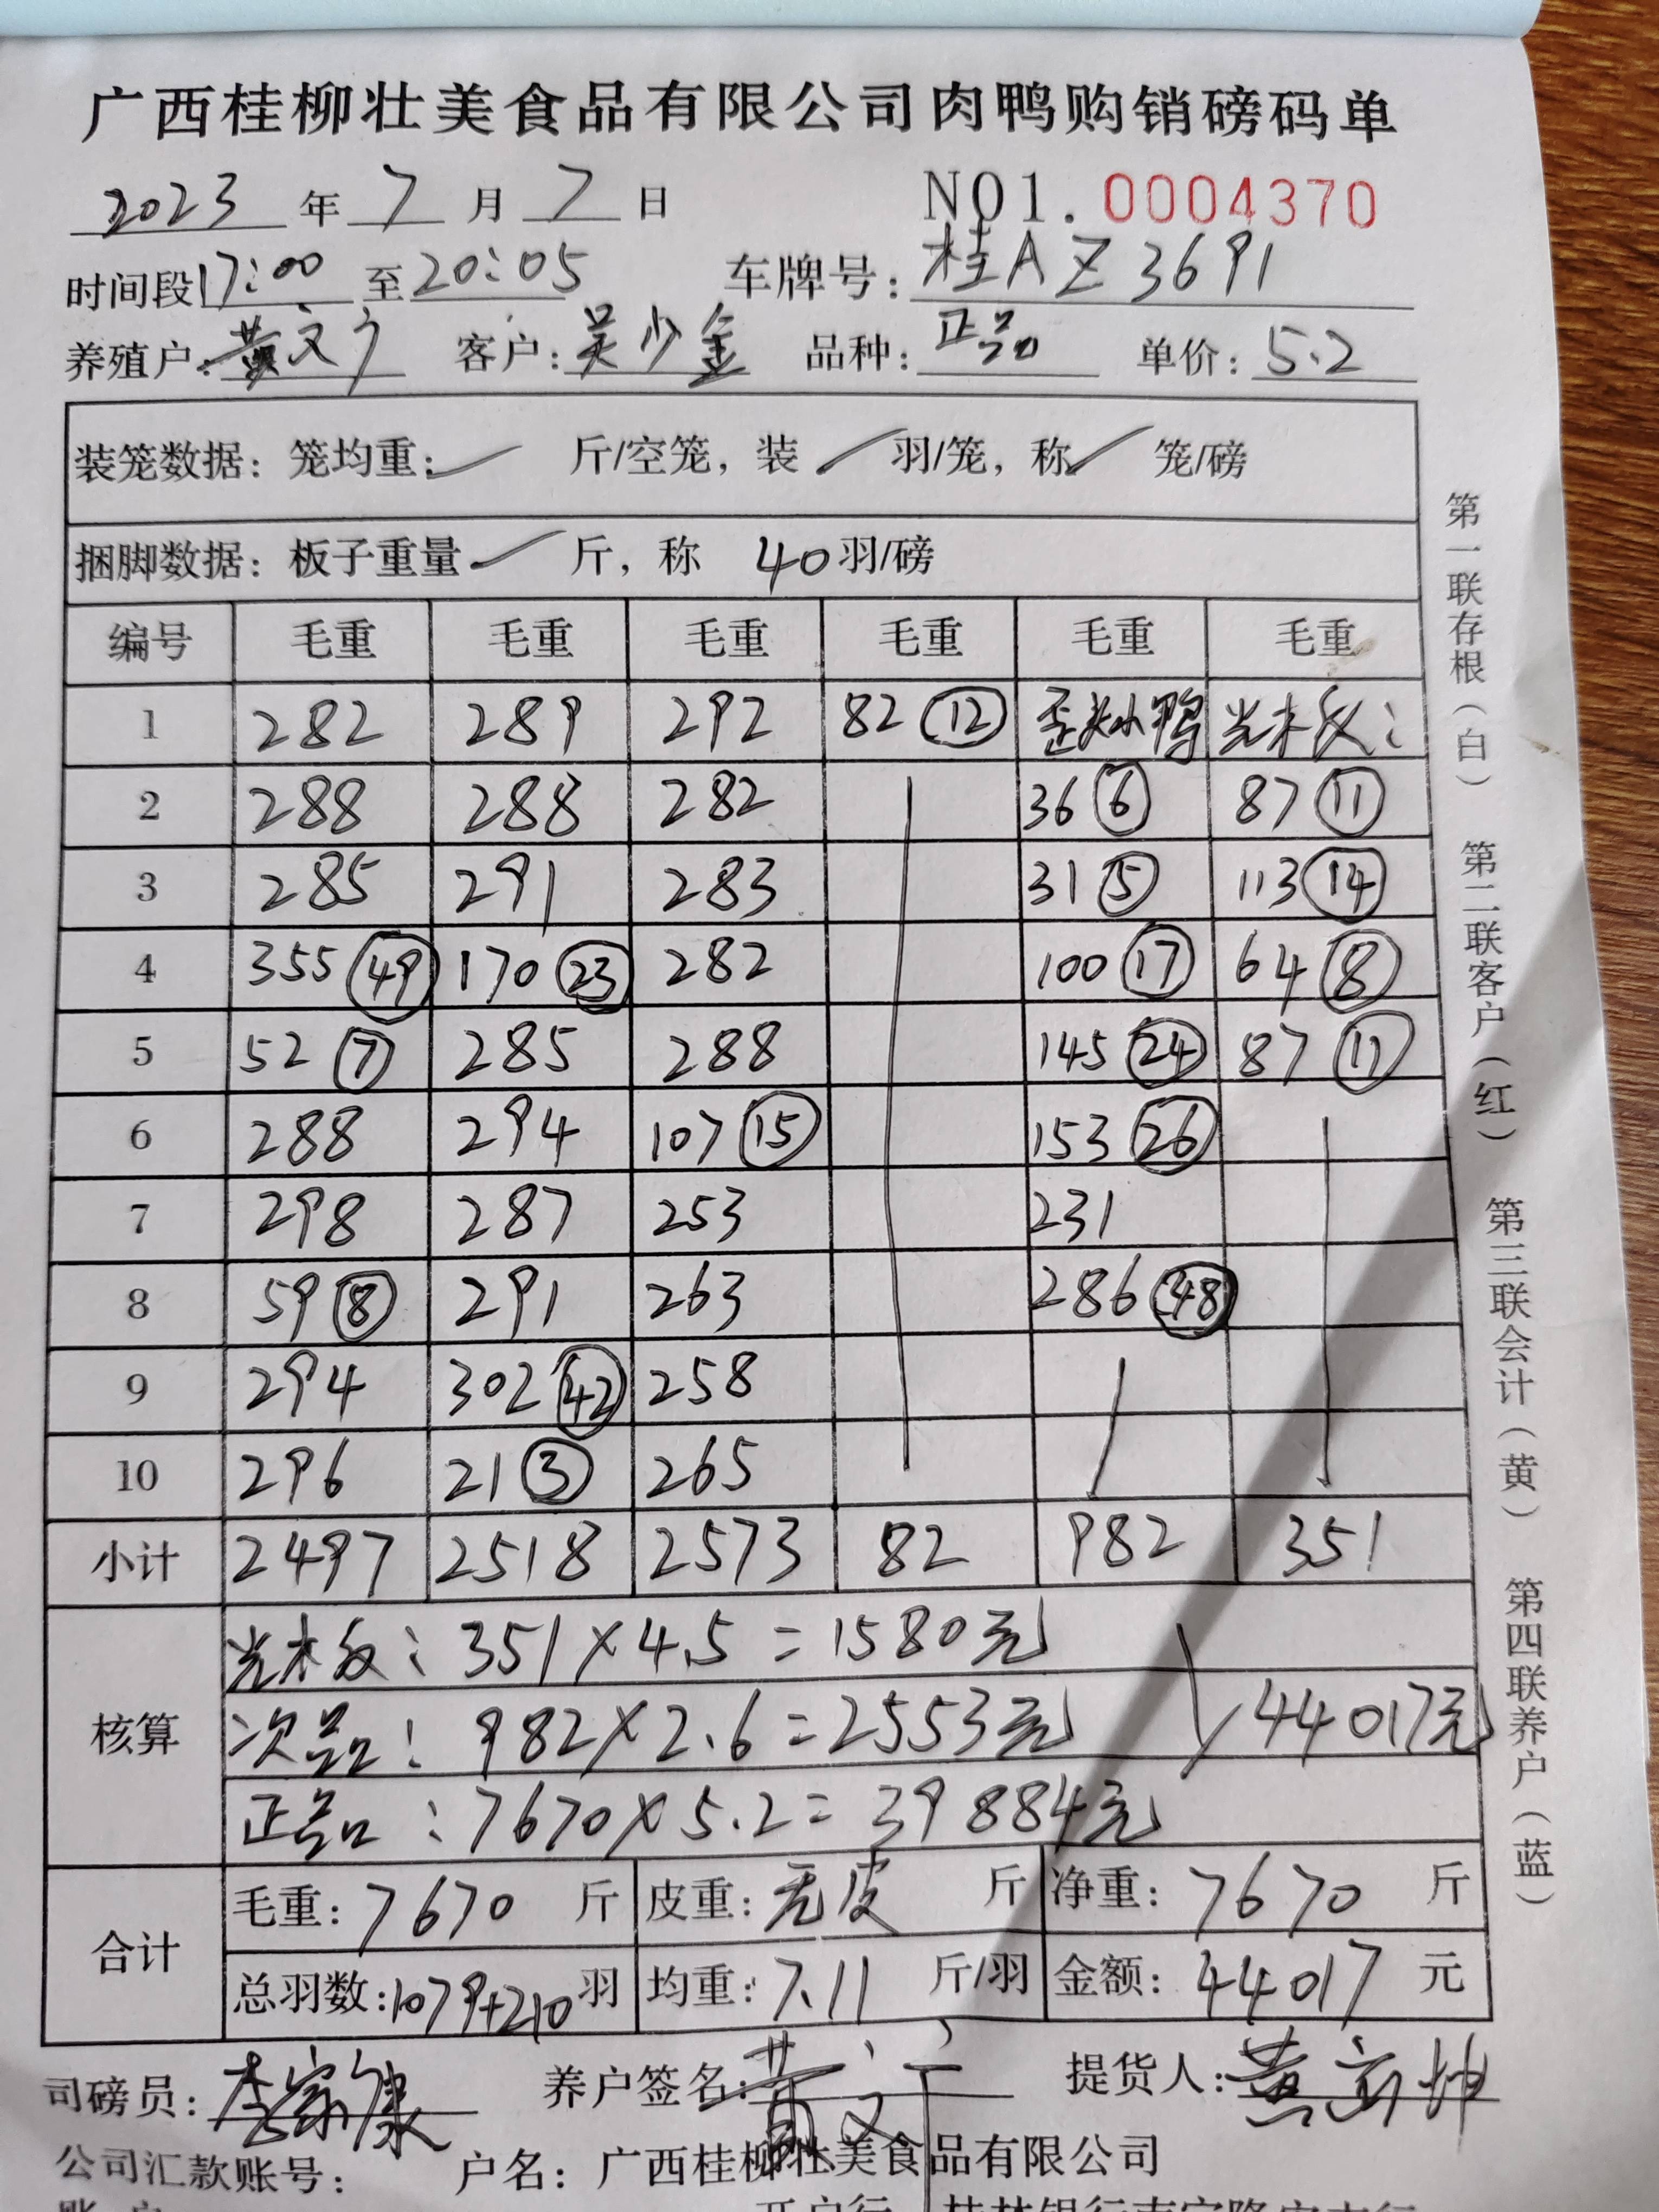 广西桂柳壮美食品有限公司肉鸭购销磅码单
2023 年 7 月 7 日 NO1. 0004370
时间段 17:00 至 20:05 车牌号: 桂AZ3691
养殖户: 黄文广 客户: 吴少金 品种: 正品 单价: 5.2
装笼数据: 笼均重: 斤/空笼, 装 羽/笼, 称 笼/磅
捆脚数据: 板子重量 斤, 称 40 羽/磅
编号 毛重 毛重 毛重 毛重 毛重 毛重
1 282 289 292 82 ⑫ 歪头小鸭 光木板:
2 288 288 282 36 ⑥ 87 ⑪
3 285 291 283 31 ⑤ 113 ⑭
4 355 ㊾ 170 ㉓ 282 100 ⑰ 64 ⑧
5 52 ⑦ 285 288 145 ㉔ 87 ⑪
6 288 294 107 ⑮ 153 ㉖
7 298 287 253 231
8 59 ⑧ 291 263 286 ㊽
9 294 302 ㊷ 258
10 296 21 ③ 265
小计 2497 2518 2573 82 982 351
核算
光木板: 351×4.5=1580元
次品: 982×2.6=2553元 44017元
正品: 7670×5.2=39884元
合计
毛重: 7670 斤 皮重: 无皮 斤 净重: 7670 斤
总羽数: 1079+210 羽 均重: 7.11 斤/羽 金额: 44017 元
司磅员: 李家康 养户签名: 黄文广 提货人:
公司汇款账号: 户名: 广西桂柳壮美食品有限公司
第一联存根(白) 第二联客户(红) 第三联会计(黄) 第四联养户(蓝)